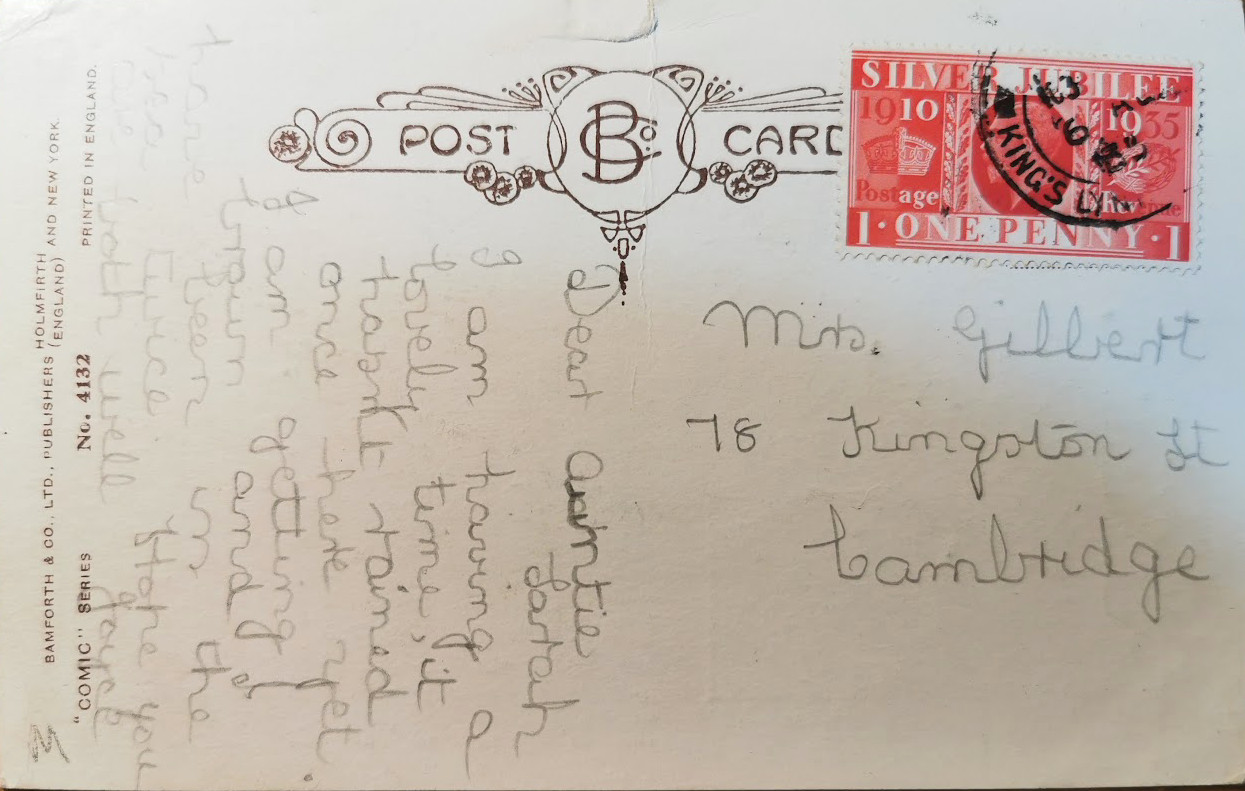 POST B&Co. CARD
SILVER JUBILEE
1910 1935
Postage Revenue
1 · ONE PENNY · 1
KING'S LY
Mrs. Gilbert
78 Kingston St
Cambridge
Dear Auntie
Sarah
I am having a
lovely time, it
hasn't rained
once here yet.
I am getting
brown and I
have been in the
sea twice Hope you
are both well Joyce
BAMFORTH & CO., LTD., PUBLISHERS HOLMFIRTH (ENGLAND) AND NEW YORK.
"COMIC" SERIES No. 4132 PRINTED IN ENGLAND.